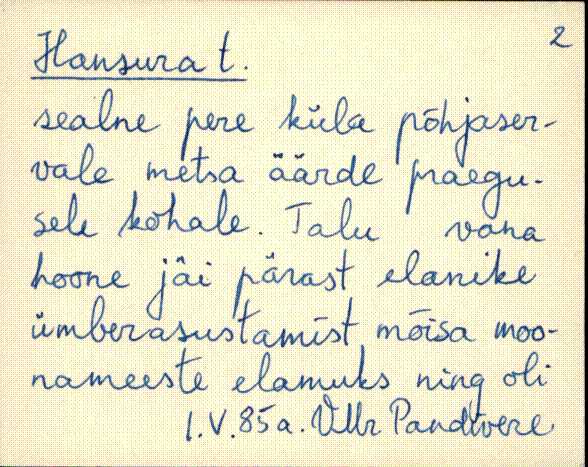 2
Hansura t.
sealne pere küla põhjaser-
vale metsa äärde praegu-
sele kohale. Talu vana
hoone jäi pärast elanike
ümberasustamist mõisa moo-
nameeste elamuks ning oli
1.V.85a. VMr Pandivere